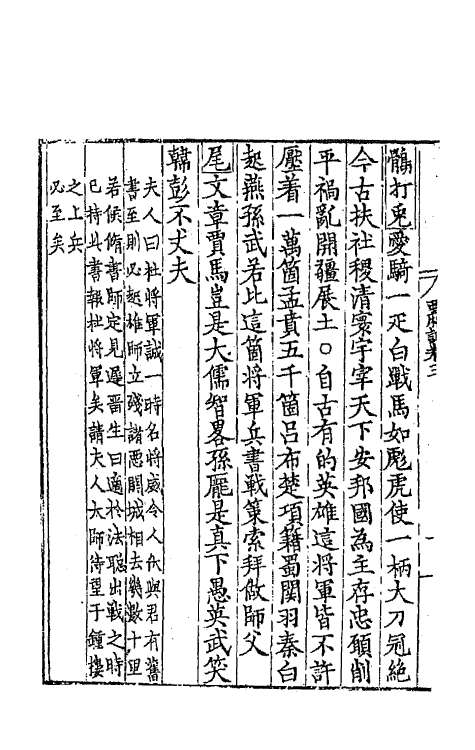 鶻打兎愛騎一疋白戰馬如彪虎使一柄大刀冠絶
今古扶社稷清寰宇宰天下安邦國為主存忠願削
平禍亂開疆展土○自古有的英雄這將軍皆不許
壓着一萬箇孟賁五千箇呂布楚項籍蜀関羽秦白
起燕孫武若比這箇將軍兵書戰策索拜做師父
尾文章賈馬豈是大儒智畧孫龐是真下愚英武笑
韓彭不丈夫
夫人曰杜將軍誠一時名將威令人伏與君有舊
書至則必起雄師立殘諸惡関城相去幾數十里
若候脩書師定見遲罾生曰適於法聦出戰之時
已持此書報杜將軍矣請夫人大師待望于鐘樓
之上兵
必至矣
西廂記卷三